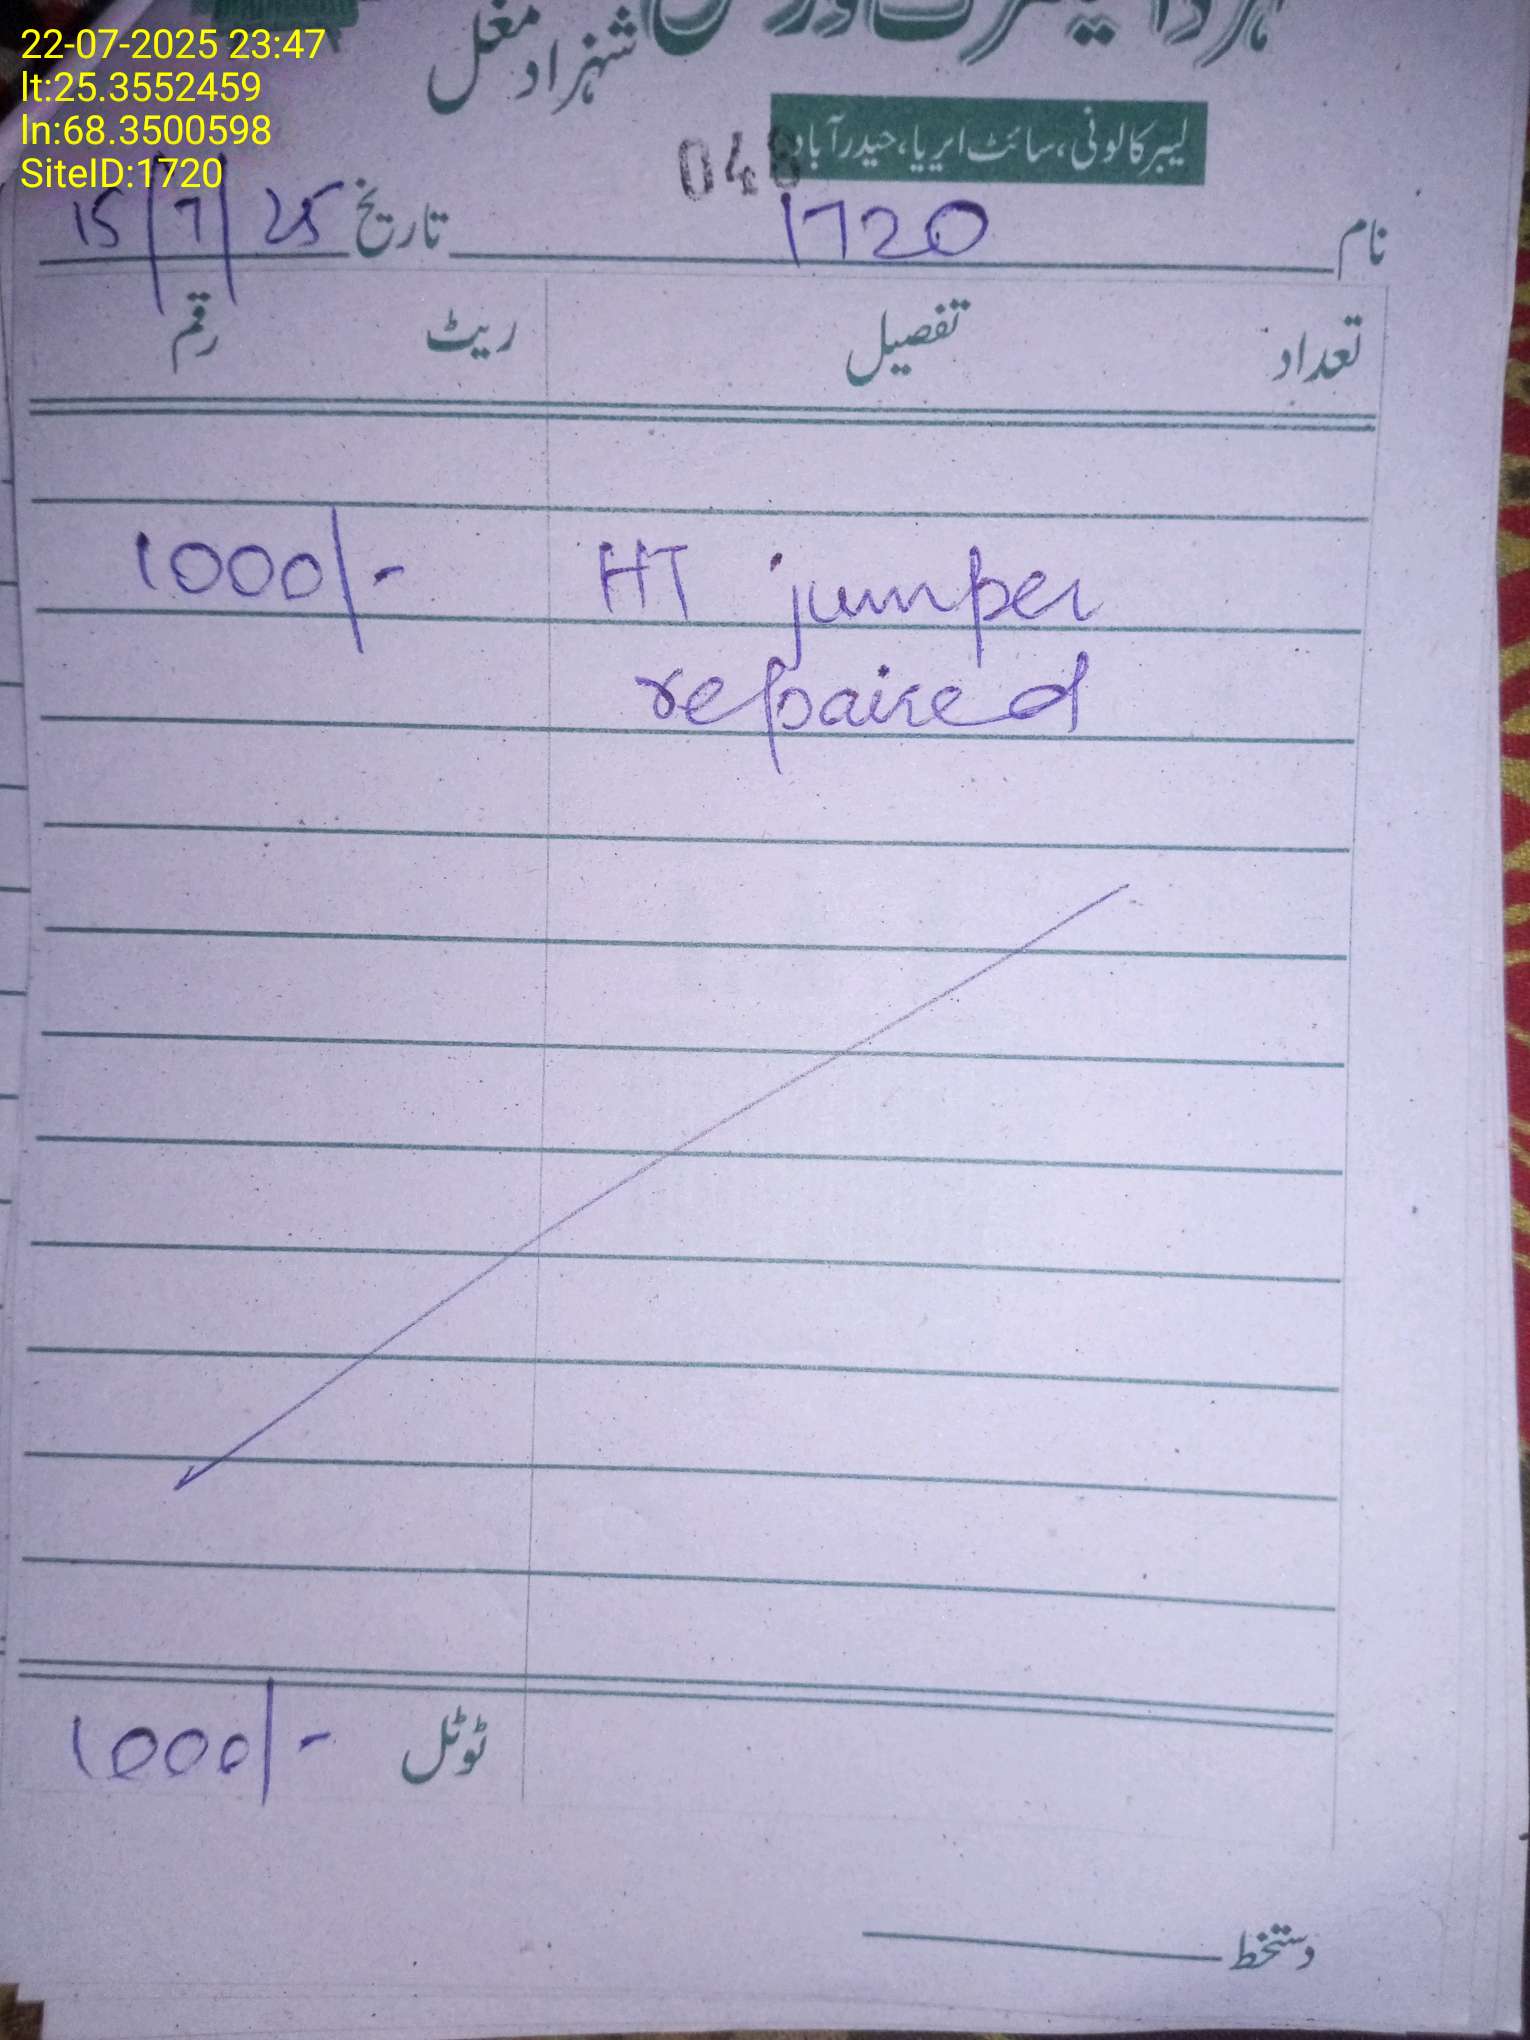 22-07-2025 23:47
lt:25.3552459
ln:68.3500598
SiteID:1720
شہزاد مغل
لیبر کالونی، سائٹ ایریا، حیدرآباد
048
نام 1720 تاریخ 15/7/25
تعداد تفصیل ریٹ رقم
HT jumper 1000/-
repaired
ٹوٹل 1000/-
دستخط